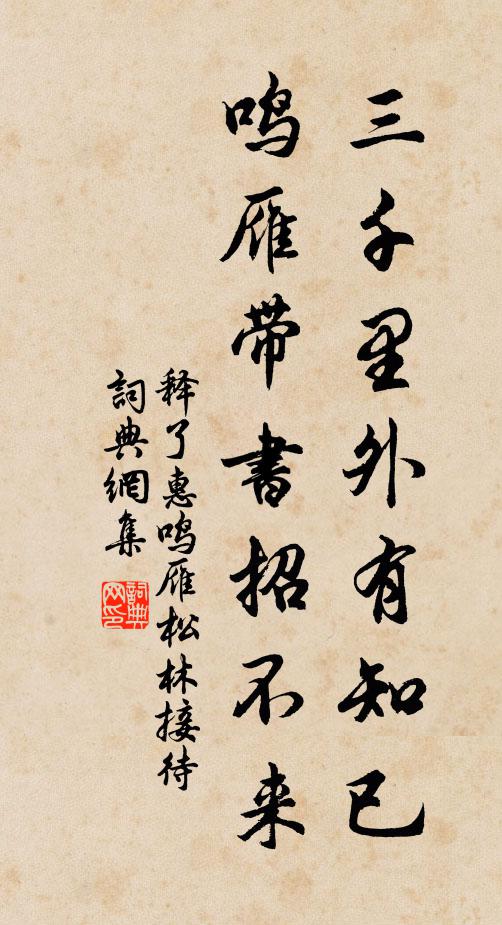 三千里外有知已
鸣雁带書招不来
释了惠鸣雁松林接待
詞典網集
詞典
网印